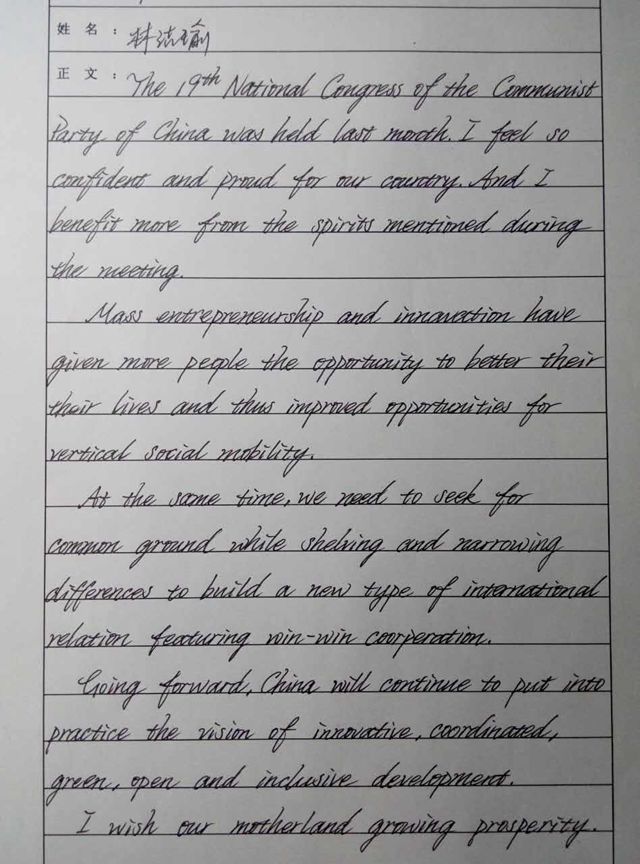 姓 名 : 林洁瑜
正 文 : The 19th National Congress of the Communist
Party of China was held last month. I feel so
confident and proud for our country. And I
benefit more from the spirits mentioned during
the meeting.
Mass entrepreneurship and innavection have
given more people the opportunity to better their
their lives and thus improved opportunities for
vertical social mobility.
At the same time, we need to seek for
common ground while shelving and narrowing
differences to build a new type of international
relation featuring win-win coorperation.
Going forward, China will continue to put into
practice the vision of innovative, coordinated,
green, open and inclusive development.
I wish our motherland growing prosperity.